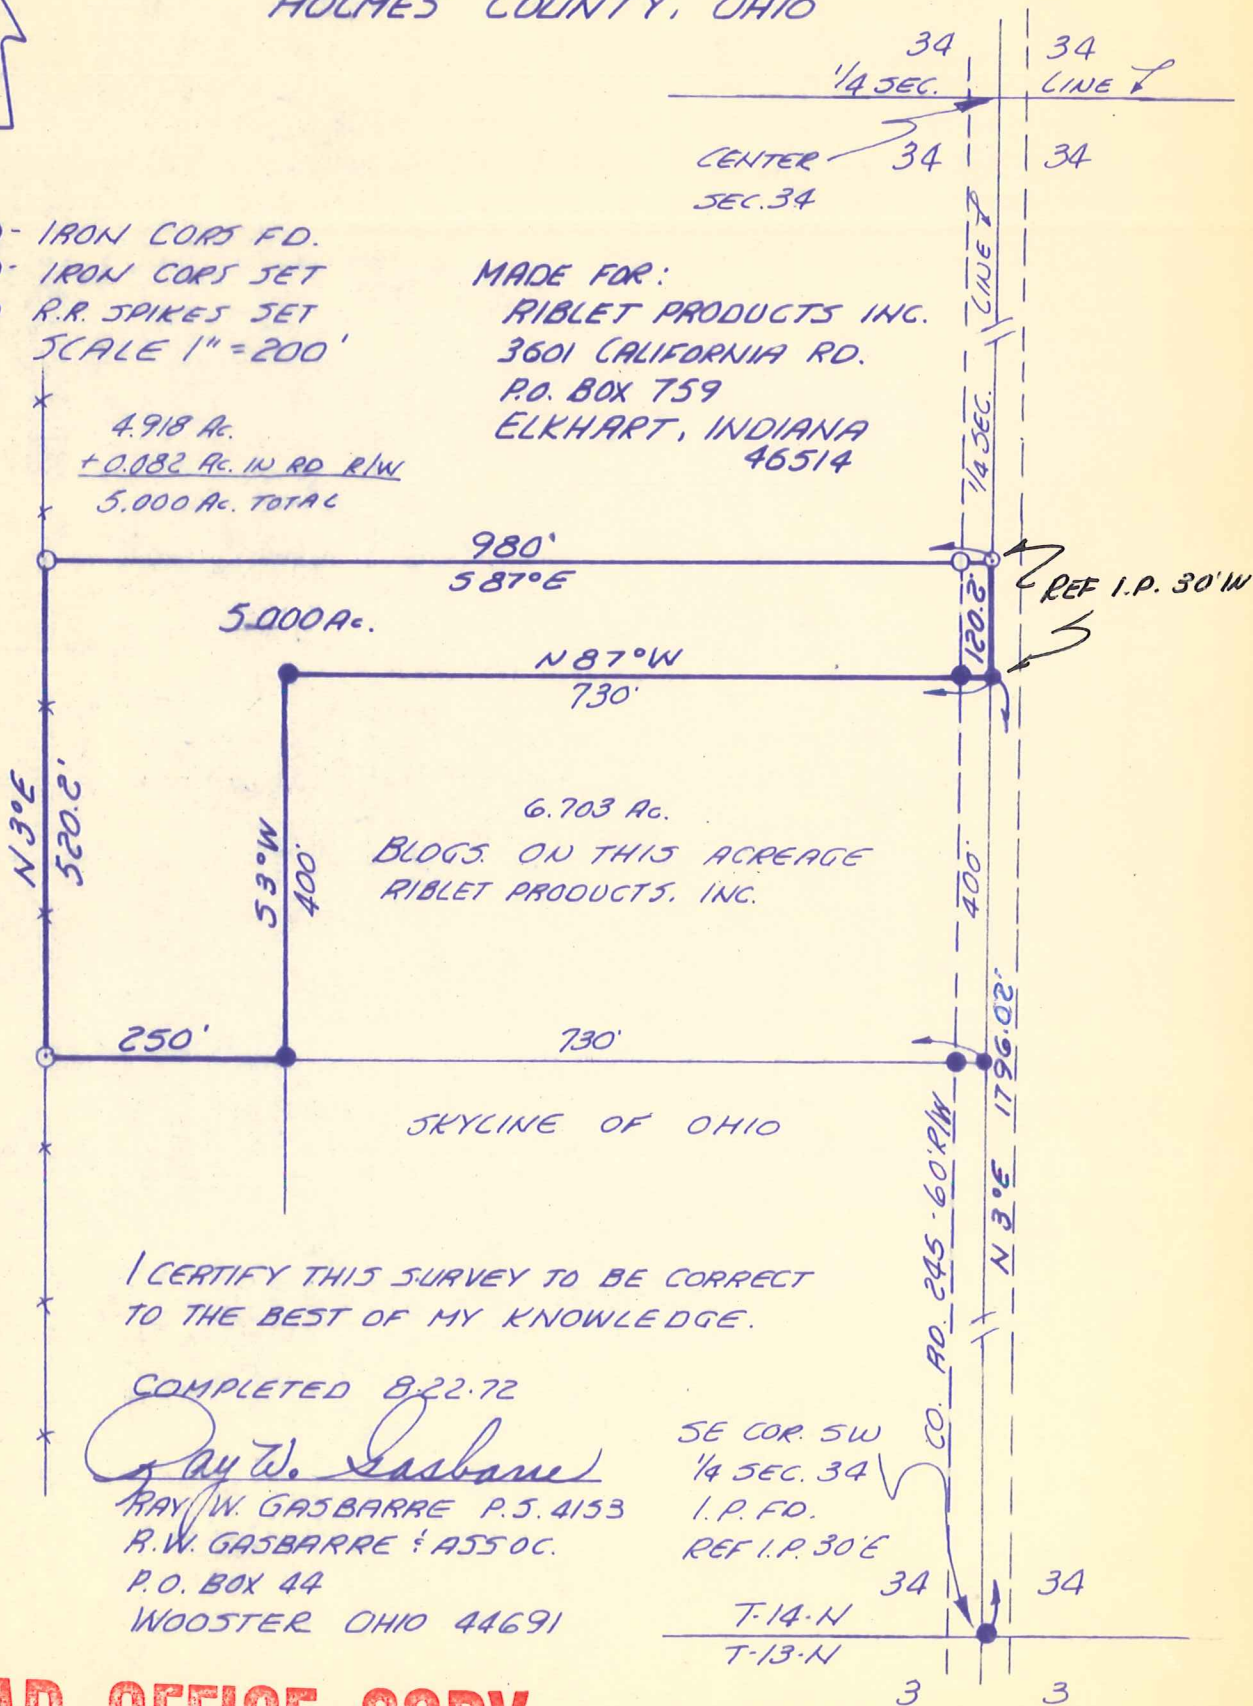 HOLMES COUNTY, OHIO
34 34
1/4 SEC. LINE
CENTER 34 34
SEC. 34
- IRON CORS FD.
- IRON CORS SET
R.R. SPIKES SET
SCALE 1" = 200'
MADE FOR:
RIBLET PRODUCTS INC.
3601 CALIFORNIA RD.
P.O. BOX 759
ELKHART, INDIANA
46514
1/4 SEC. LINE
4.918 Ac.
+0.082 Ac. IN RD R/W
5.000 Ac. TOTAL
980'
S 87°E
REF I.P. 30' IN
120.2'
5.000 Ac.
N 87°W
730'
N 3°E
520.2'
S 3°W
400'
6.703 Ac.
BLDGS. ON THIS ACREAGE
RIBLET PRODUCTS, INC.
400'
250'
730'
SKYLINE OF OHIO
CO. RD. 245 - 60' R/W
N 3°E 1796.02'
I CERTIFY THIS SURVEY TO BE CORRECT
TO THE BEST OF MY KNOWLEDGE.
COMPLETED 8.22.72
Ray W. Gasbarre
RAY W. GASBARRE P.S. 4153
R.W. GASBARRE & ASSOC.
P.O. BOX 44
WOOSTER OHIO 44691
SE COR. SW
1/4 SEC. 34
I.P. FD.
REF I.P. 30'E
34 34
T-14-N
T-13-N
3 3
OFFICE COPY